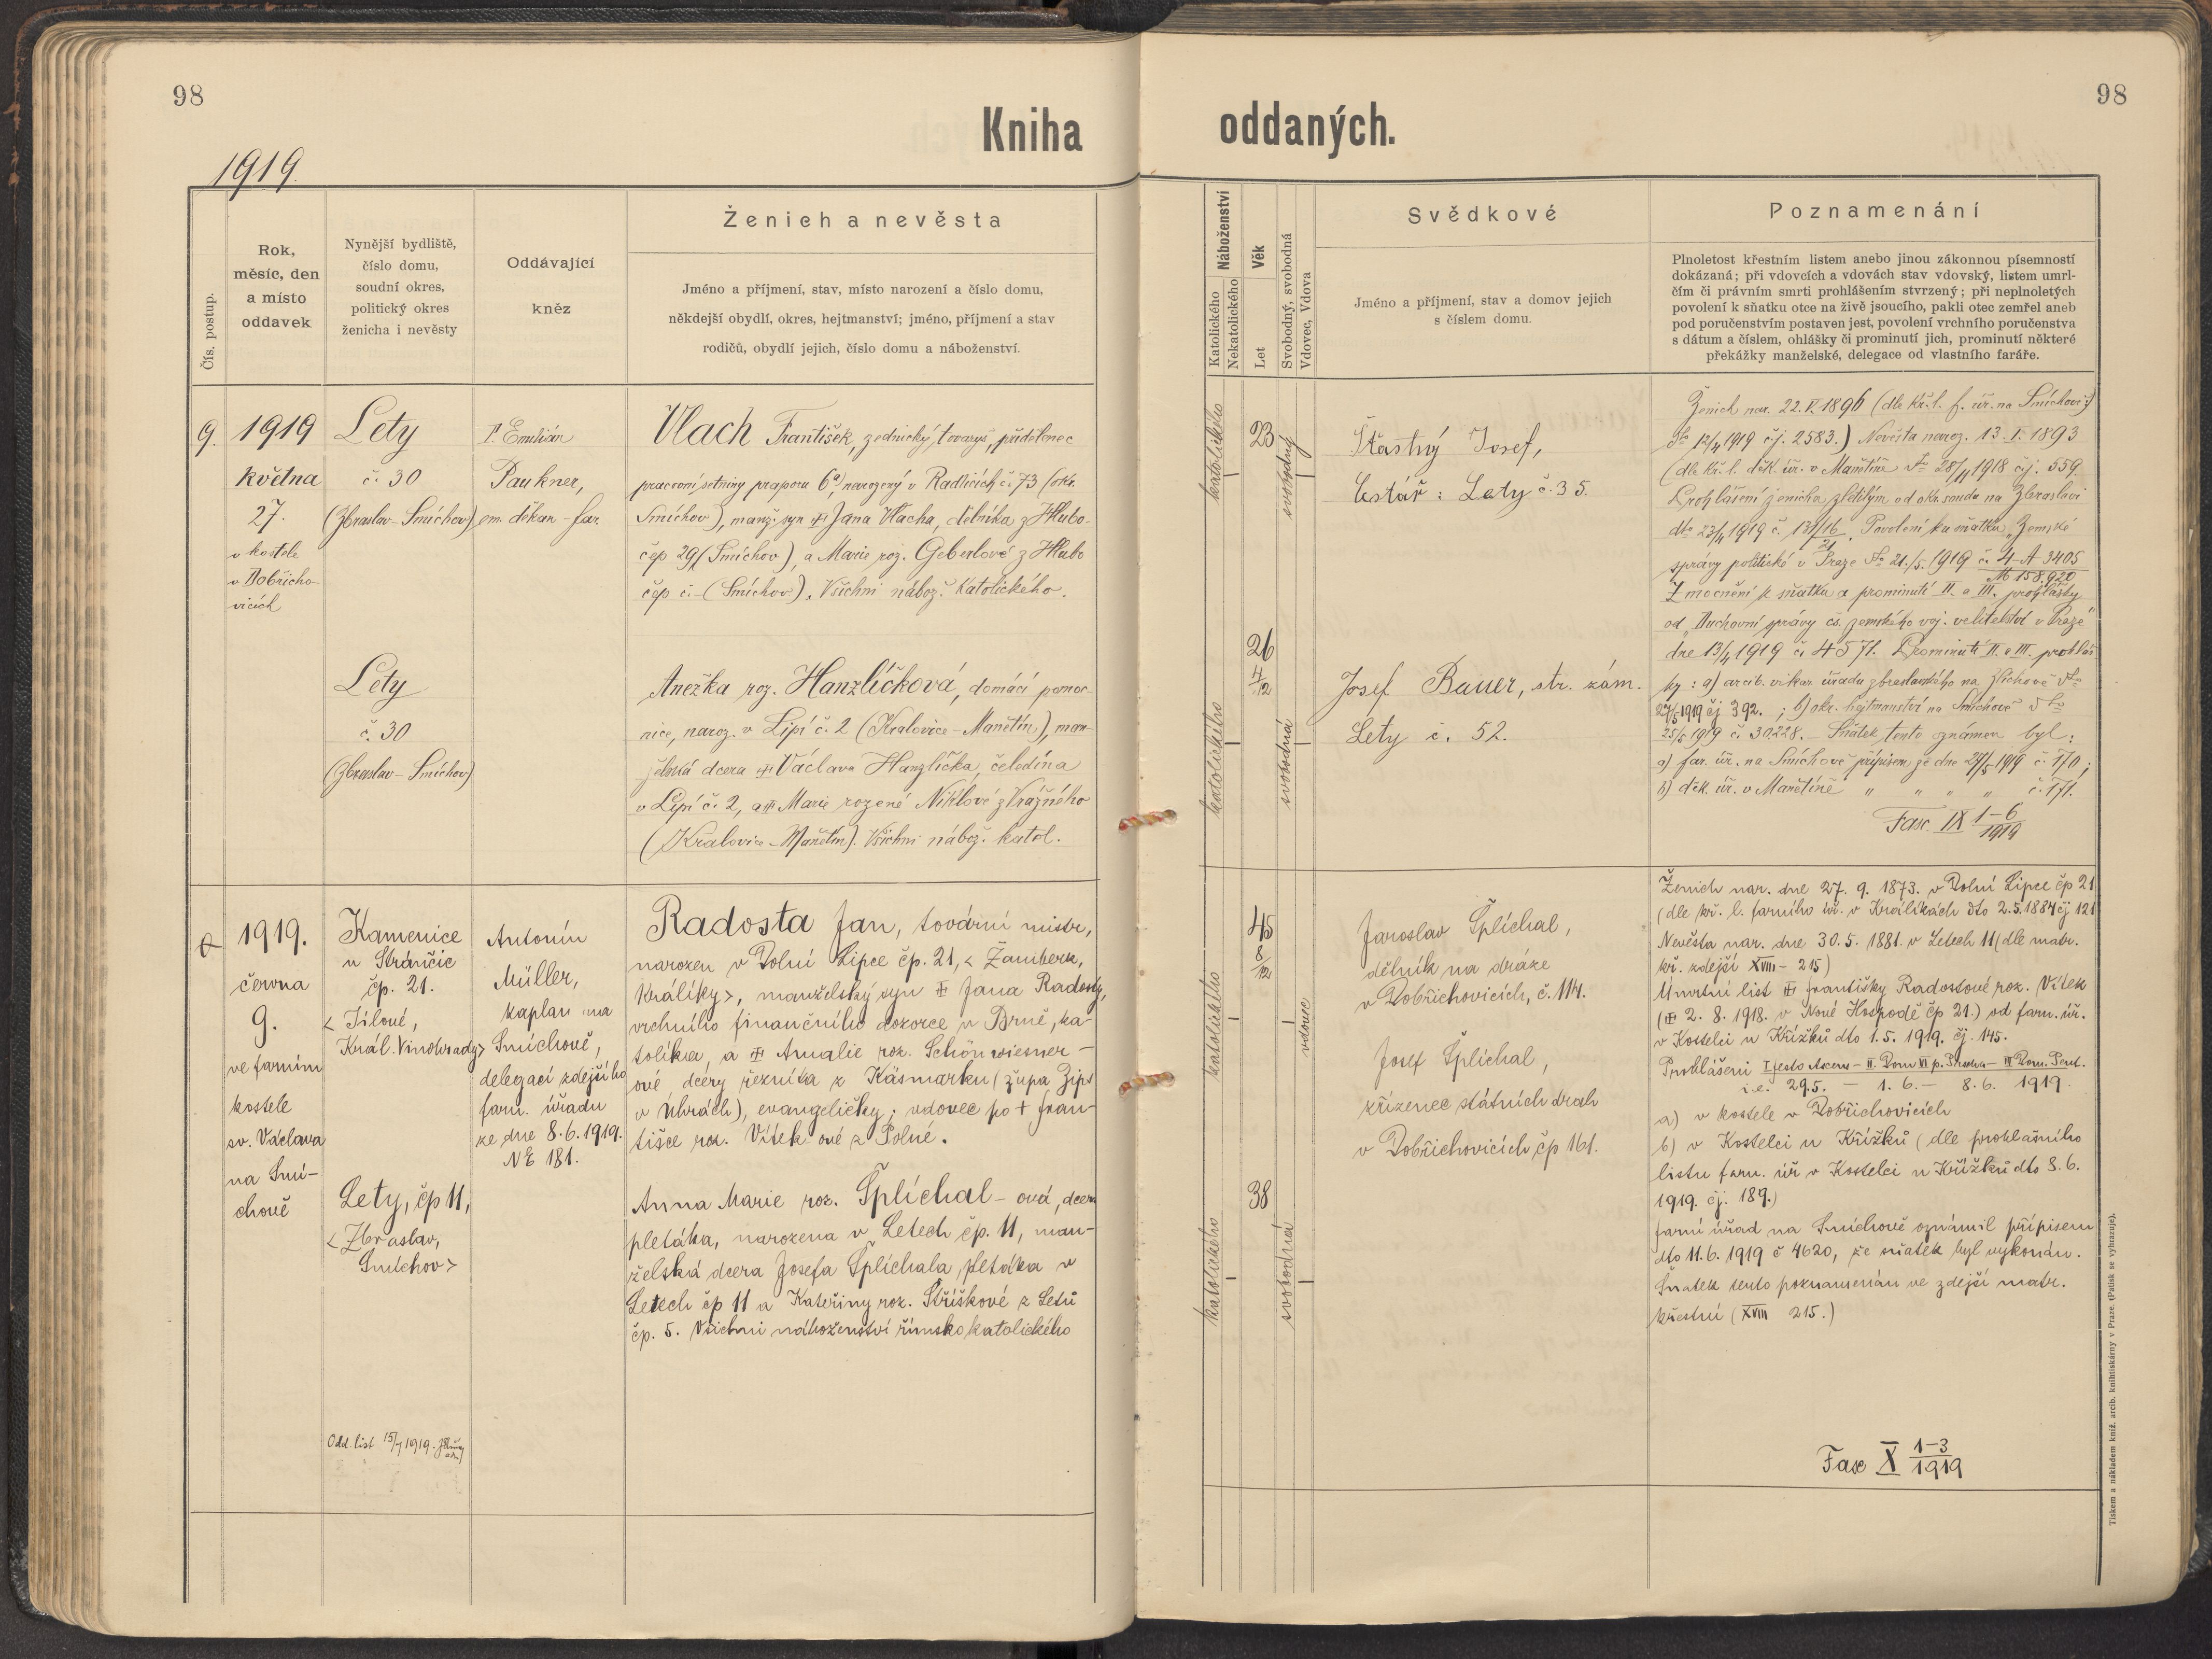 98
98
Kniha oddaných.
1919.
Čís. postup.
Rok,
měsíc, den
a místo
oddavek
Nynější bydliště,
číslo domu,
soudní okres,
politický okres
ženicha i nevěsty
Oddávající
kněz
Ženich a nevěsta
Jméno a příjmení, stav, místo narození a číslo domu,
někdejší obydlí, okres, hejtmanství; jméno, příjmení a stav
rodičů, obydlí jejich, číslo domu a náboženství.
Náboženství
Katolického
Nekatolického
Věk
Let
Svobodný, svobodná
Vdovec, Vdova
Svědkové
Jméno a příjmení, stav a domov jejich
s číslem domu.
Poznamenání
Plnoletost křestním listem anebo jinou zákonnou písemností
dokázaná; při vdovcích a vdovách stav vdovský, listem umrl-
čím či právním smrti prohlášením stvrzený; při neplnoletých
povolení k sňatku otce na živě jsoucího, pakli otec zemřel aneb
pod poručenstvím postaven jest, povolení vrchního poručenstva
s dátum a číslem, ohlášky či prominutí jich, prominutí některé
překážky manželské, delegace od vlastního faráře.
9.
1919
května
27.
v kostele
v Dobřicho-
vicích
Lety
č. 30
(Zbraslav-Smíchov)
P. Emilián
Paukner,
em. děkan-far.
Vlach František, zednický tovaryš, přidělenec
pracovní setniny praporu 6ª, narozený v Radlicích č. 73 (okr.
Smíchov), manž. syn Jana Vlacha, dělníka z Hlubo-
čep 29 (Smíchov), a Marie roz. Geberlové z Hlubo
čep č. - (Smíchov). Všichni nábož. Katolického.
katolického
23
svobodný
Šťastný Josef,
Cestář: Lety č. 35.
Lety
č. 30
(Zbraslav-Smíchov)
Anežka roz. Hanzlíčková, domácí pomoc-
nice, naroz. v Lipí č. 2 (Kralovice-Manětín), man-
želská dcera Václava Hanzlíčka, čeledína
v Lipí č. 2, a Marie rozené Niklové z Vrážného
(Kralovice-Manětín). Všichni nábož. katol.
katolického
26
4/12
svobodná
Josef Bauer, str. zám.
Lety č. 52.
Ženich nar. 22. V. 1896 (dle kř. l. f. úř. na Smíchově
dto 12/4 1919 č.j. 2583.) Nevěsta naroz. 13. I. 1893
(dle kř. l. děk. úř. v Manětíně dto 28/11 1918 č.j. 559
Prohlášení ženicha zletilým od okr. soudu na Zbraslavi
dto 23/4 1919 č. 131/16/21. Povolení ku sňatku "Zemské
správy politické v Praze dto 21./5. 1919 č. 4-A-3405
M 158.920
Zmocnění k sňatku a prominutí II. a III. prohlášky
od "Duchovní správy čs. zemského voj. velitelství v Praze"
dne 13/4 1919 č. 4571. Prominutí II. a III. prohláš-
ky: a) arcib. vikar. úřadu zbraslavského na Zlíchově dto
27/5 1919 čj 392. ; b) okr. hejtmanství na Smíchově dto
25/5 1919 č. 30.228. - Sňatek tento oznámen byl:
a) far. úř. na Smíchově přípisem ze dne 27/5 1919 č. 170;
b) děk. úř. v Manětíně " " " " č. 171.
Fasc. IX 1-6/1919
1919.
června
9.
ve farním
kostele
sv. Václava
na Smí-
chově
Kamenice
u Stránčic
čp. 21.
< Jílové,
Král. Vinohrady>
Antonín
Müller,
kaplan na
Smíchově,
delegací zdejšího
farn. úřadu
ze dne 8. 6. 1919.
NE 181.
Radosta Jan, tovární mistr,
narozen v Dolní Lipce čp. 21, < Žamberk,
Králíky>, manželský syn Jana Radosty,
vrchního finančního dozorce v Brně, ka-
tolíka, a Amalie roz. Schönwiesner-
ové dcéry řezníka z Käsmarku (župa Zips
v Uhrách), evangeličky; vdovec po + Fran-
tišce roz. Vítek ové z Polné.
katolického
45
8/12
vdovec
Jaroslav Šplíchal,
dělník na dráze
v Dobřichovicích, č. 114.
Josef Šplíchal,
zřízenec státních drah
v Dobřichovicích, čp 161.
Lety, čp 11,
< Zbraslav,
Smíchov>
Anna Marie roz. Šplíchal-ová, dcera
pletáka, narozena v Letech čp. 11, man-
želská dcera Josefa Šplíchala, pletáka v
Letech čp 11 a Kateřiny roz. Stříškové z Letů
čp. 5. Všichni náboženství římsko katolického
katolického
38
svobodná
Odd. list 15/7 1919.
Ženich nar. dne 27. 9. 1873. v Dolní Lipce čp 21
(dle kř. l. farního úř. v Králíkách dto 2. 5. 1884 čj 121
Nevěsta nar. dne 30. 5. 1881. v Letech 11 (dle matr.
kř. zdejší XVIII - 215)
Úmrtní list Františky Radostové roz. Vítek
( 2. 8. 1918. v Nové Hospodě čp 21.) od farn. úř.
v Kostelci u Křížků dto 1. 5. 1919. čj. 145.
Prohlášeni I festo Ascens - II. Dom VI p. Pascha - III Dom. Pent.
i.e. 29.5. - 1. 6. - 8. 6. 1919.
a) v kostele v Dobřichovicích
b) v Kostelci u Křížků (dle prohlašního
listu farn. úř v Kostelci u Křížků dto 8. 6.
1919. čj. 189.)
Farní úřad na Smíchově oznámil přípisem
dto 11. 6. 1919 č 4620, že sňatek byl vykonán.
Sňatek tento poznamenán ve zdejší matr.
křestní (XVIII 215.)
Fasc X 1-3/1919
Tiskem a nákladem kníž. arcib. knihtiskárny v Praze. (Patisk se vyhrazuje).